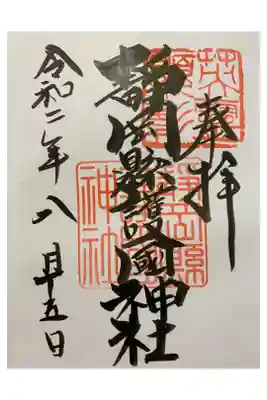 奉拝
静岡縣護國神社
令和二年八月十五日